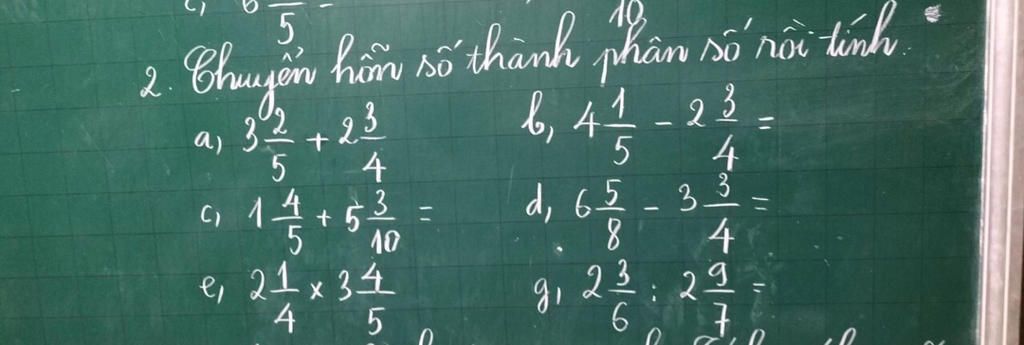 c, 6 /5 = 10
2. Chuyển hỗn số thành phân số rồi tính.
a, 3 2/5 + 2 3/4 b, 4 1/5 - 2 3/4 =
c, 1 4/5 + 5 3/10 = d, 6 5/8 - 3 3/4 =
e, 2 1/4 x 3 4/5 g, 2 3/6 : 2 9/7 =